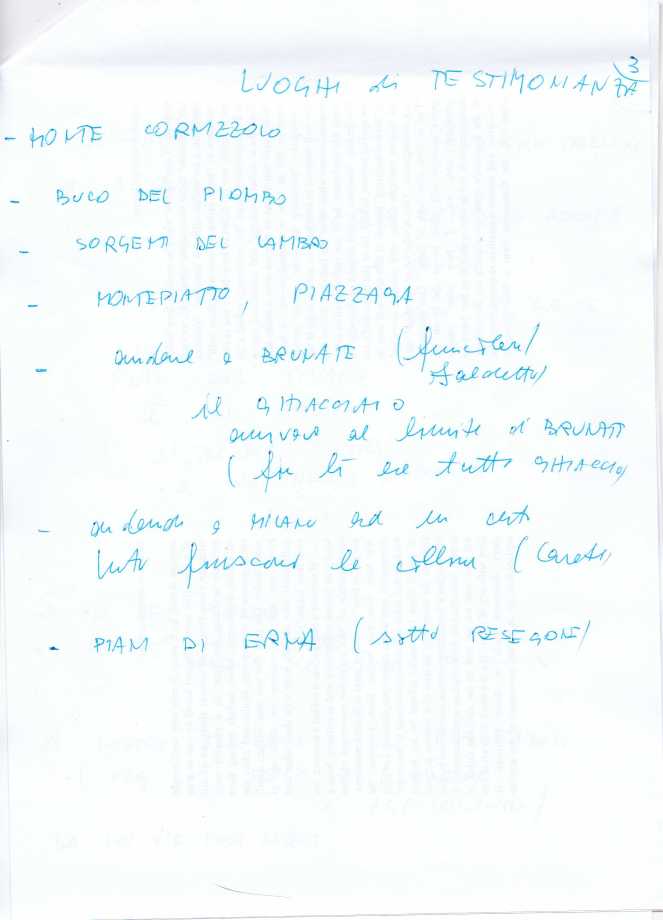 3
LUOGHI di TESTIMONIANZA
- MONTE CORNIZZOLO
- BUCO DEL PIOMBO
- SORGENTI DEL LAMBRO
- MONTEPIATTO, PIAZZAGA
- andare a BRUNATE (funicolare/
il GHIACCIAIO
arrivava al limite di BRUNATE
(fin lì era tutto GHIACCIO)
- andando a MILANO ad un certo
finiscono le colline (
- PIANI DI ERNA (sotto RESEGONE/